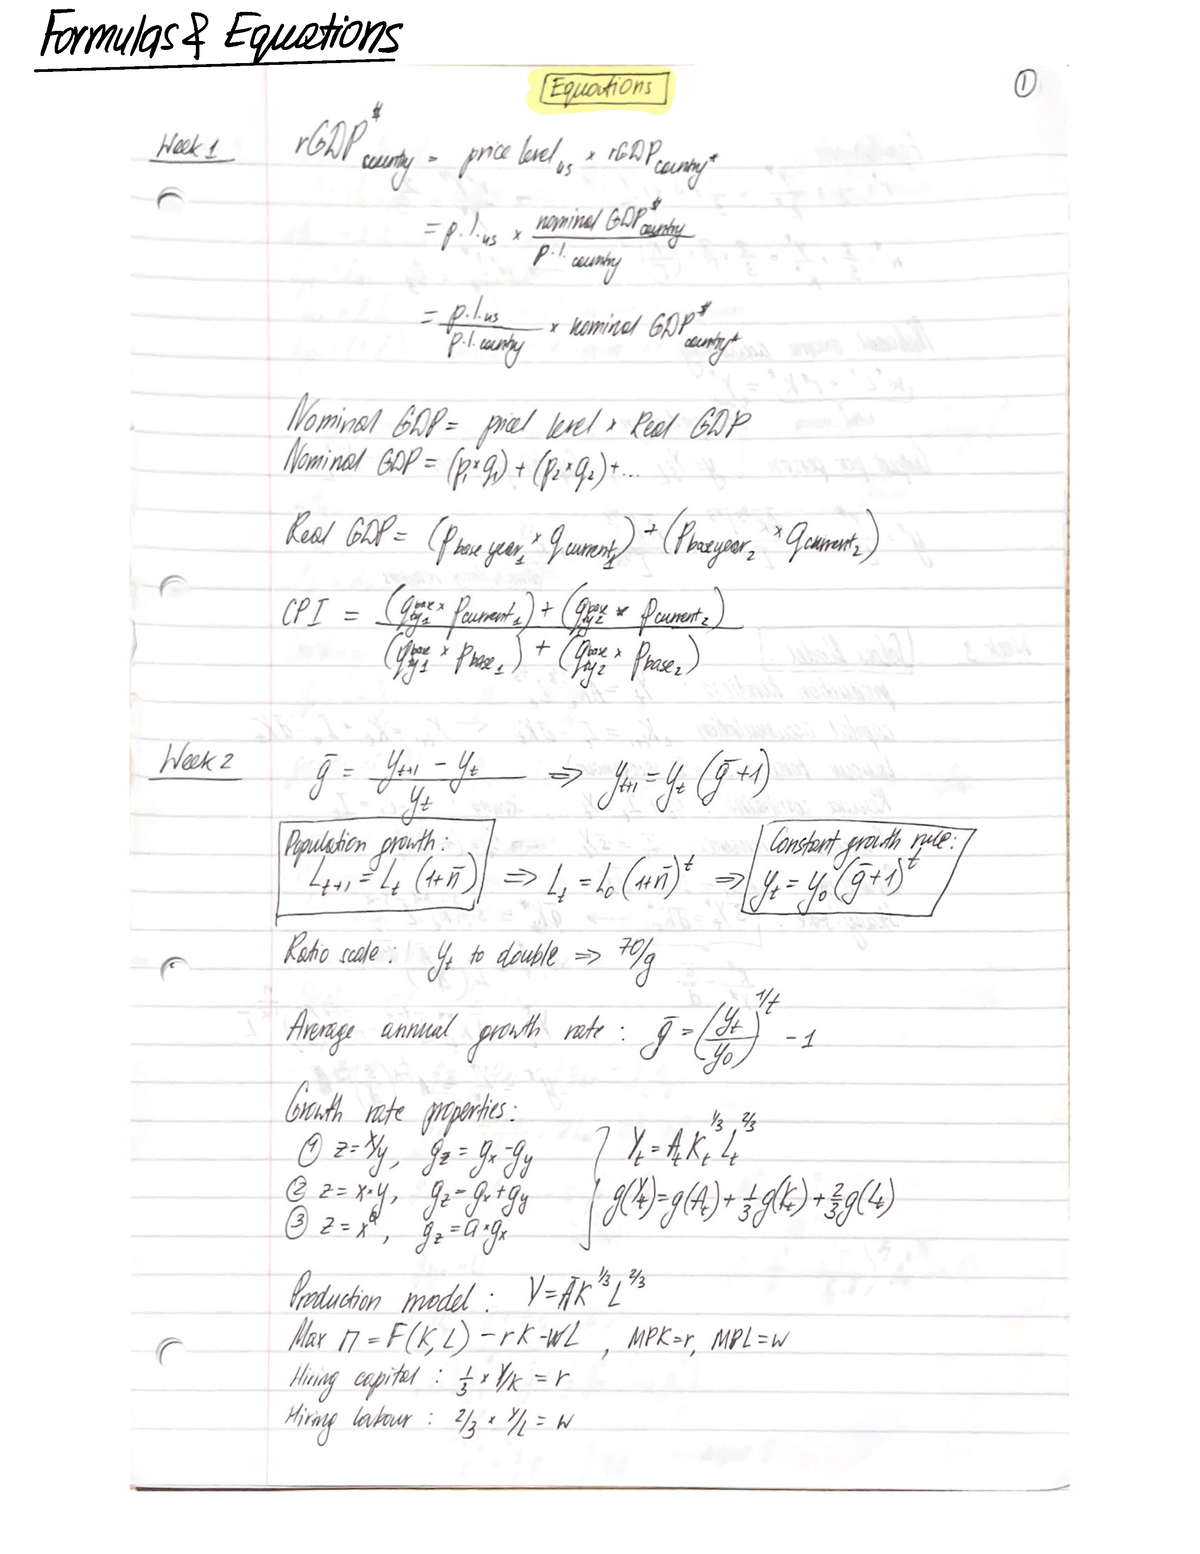 Formulas & Equations
Equations
①
Week 1
rGDP$country = price level us × rGDP country*
= p.l.us × nominal GDP$country / p.l. country
= p.l.us / p.l.country × nominal GDP$country*
Nominal GDP = price level × Real GDP
Nominal GDP = (p₁×q₁) + (p₂×q₂)+...
Real GDP = (Pbase year₁ × qcurrent₁) + (Pbaseyear₂ × qcurrent₂)
CPI = (qbase qty1 × Pcurrent₁) + (qbase qty2 × Pcurrent₂) / (qbase qty1 × Pbase₁) + (qbase qty2 × Pbase₂)
Week 2
ḡ = (yt+1 − yt) / yt ⇒ yt+1 = yt (ḡ+1)
Population growth:
Lt+1 = Lt (1+n̄) ⇒ Lt = L₀ (1+n̄)^t ⇒
Constant growth rule:
yt = y₀ (ḡ+1)^t
Ratio scale: yt to double ⇒ 70/g
Average annual growth rate: ḡ = (yt/y₀)^1/t − 1
Growth rate properties:
① z = x/y, gz = gx − gy
② z = x×y, gz = gx + gy
③ z = x^a, gz = a×gx
Yt = At Kt^1/3 Lt^2/3
g(Yt) = g(At) + 1/3 g(Kt) + 2/3 g(Lt)
Production model: Y = ĀK^1/3 L^2/3
Max Π = F(K,L) − rK − wL, MPK=r, MPL=w
Hiring capital: 1/3 × Y/K = r
Hiring labour: 2/3 × Y/L = w